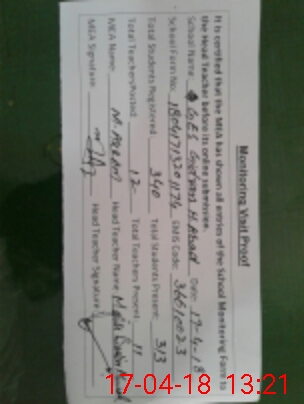 Monitoring Visit Proof
It is certified that the MEA has shown all entries of the School Monitoring Form to
the Head Teacher before its online submission.
School Name: GES Date: 17-4-18
School Form No: EMIS Code: 36610023
Total Students Registered: 340 Total Students Present: 313
Total Teachers Posted: 12 Total Teachers Present: 11
MEA Name: Head Teacher Name:
MEA Signature: Head Teacher Signature:
17-04-18 13:21